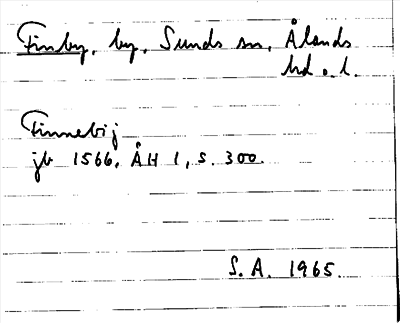 Finby, by, Sunds sn, Ålands
hd o. l.
Finnebij
jb 1566. ÅH 1, s. 300.
S. A. 1965.